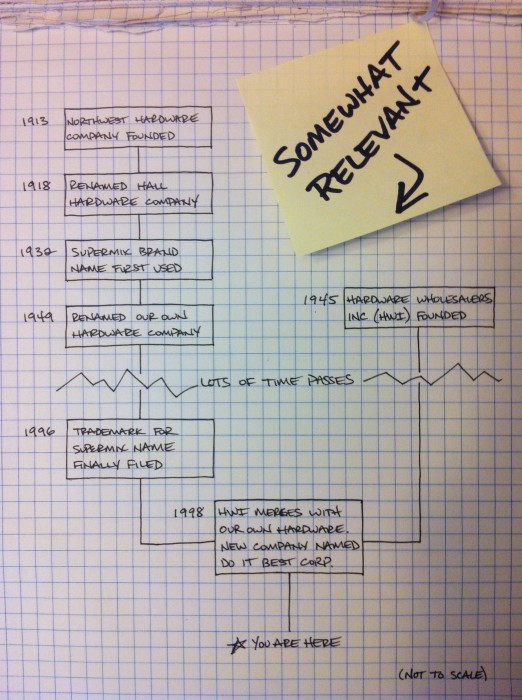 SOMEWHAT
RELEVANT
1913 NORTHWEST HARDWARE
COMPANY FOUNDED
1918 RENAMED HALL
HARDWARE COMPANY
1932 SUPERMIX BRAND
NAME FIRST USED
1945 HARDWARE WHOLESALERS
INC (HWI) FOUNDED
1949 RENAMED OUR OWN
HARDWARE COMPANY
LOTS OF TIME PASSES
1996 TRADEMARK FOR
SUPERMIX NAME
FINALLY FILED
1998 HWI MERGES WITH
OUR OWN HARDWARE.
NEW COMPANY NAMED
DO IT BEST CORP.
☆ YOU ARE HERE
(NOT TO SCALE)